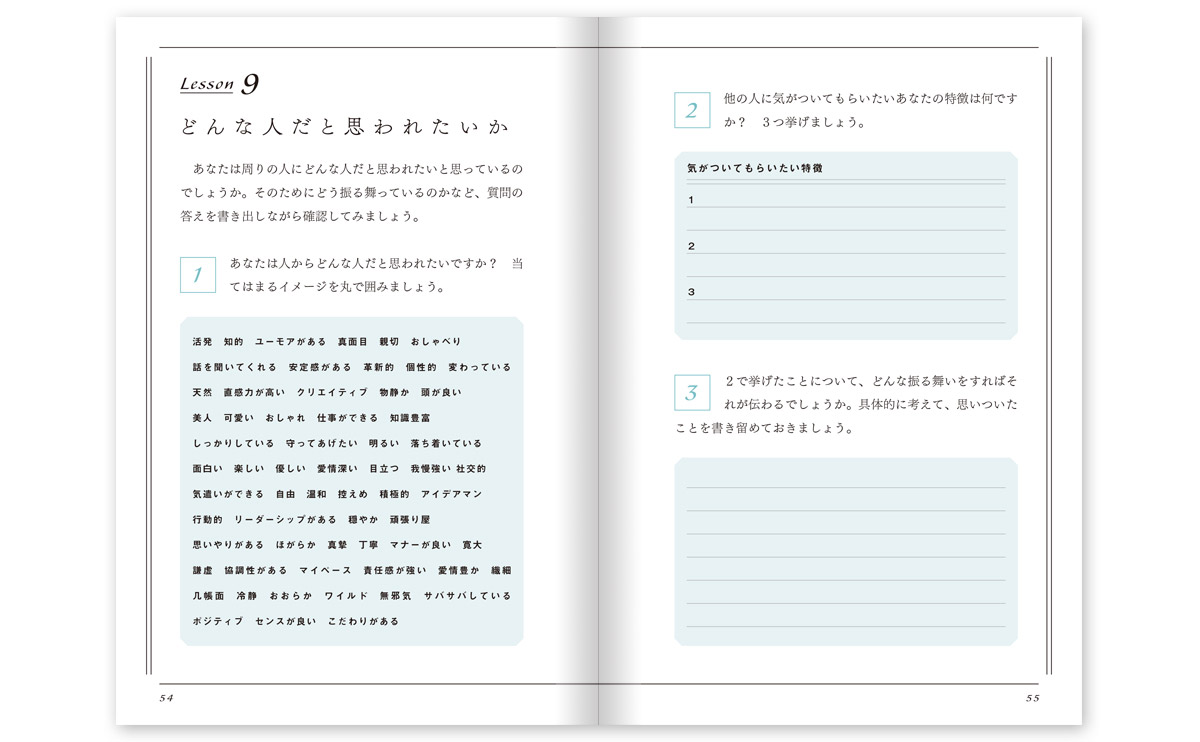 Lesson 9
どんな人だと思われたいか
あなたは周りの人にどんな人だと思われたいと思っているの
でしょうか。そのためにどう振る舞っているのかなど、質問の
答えを書き出しながら確認してみましょう。
1
あなたは人からどんな人だと思われたいですか？　当
てはまるイメージを丸で囲みましょう。
活発　知的　ユーモアがある　真面目　親切　おしゃべり
話を聞いてくれる　安定感がある　革新的　個性的　変わっている
天然　直感力が高い　クリエイティブ　物静か　頭が良い
美人　可愛い　おしゃれ　仕事ができる　知識豊富
しっかりしている　守ってあげたい　明るい　落ち着いている
面白い　楽しい　優しい　愛情深い　目立つ　我慢強い 社交的
気遣いができる　自由　温和　控えめ　積極的　アイデアマン
行動的　リーダーシップがある　穏やか　頑張り屋
思いやりがある　ほがらか　真摯　丁寧　マナーが良い　寛大
謙虚　協調性がある　マイペース　責任感が強い　愛情豊か　繊細
几帳面　冷静　おおらか　ワイルド　無邪気　サバサバしている
ポジティブ　センスが良い　こだわりがある
54
2
他の人に気がついてもらいたいあなたの特徴は何です
か？　３つ挙げましょう。
気がついてもらいたい特徴
1
2
3
3
２で挙げたことについて、どんな振る舞いをすればそ
れが伝わるでしょうか。具体的に考えて、思いついた
ことを書き留めておきましょう。
55